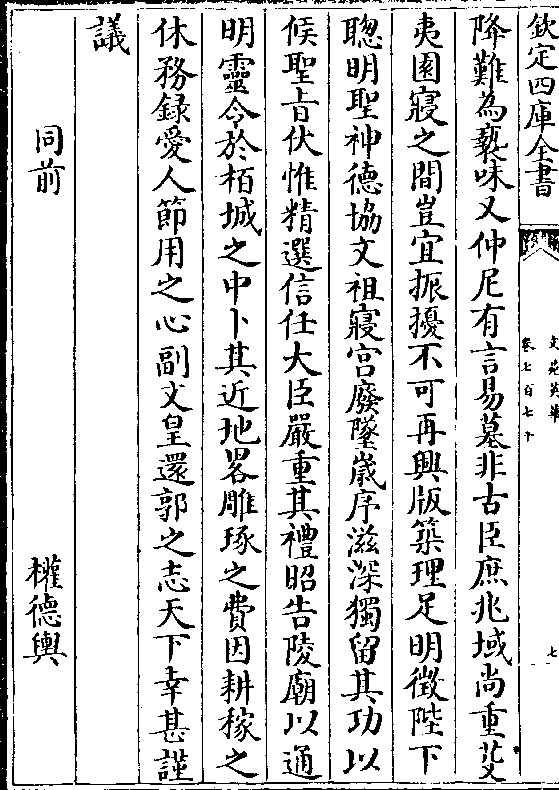 欽定四庫全書
文苑英華
卷七百七十
七
降難為褻味又仲尼有言易墓非古臣庶兆域尚重芟
夷園寢之間豈宜振擾不可再興版築理足明徵陛下
聰明聖神德協文祖寢宮廢墜歲序滋深獨留其功以
候聖旨伏惟精選信任大臣嚴重其禮昭告陵廟以通
明靈令於栢城之中卜其近地畧雕琢之費因耕稼之
休務録愛人節用之心副文皇還郭之志天下幸甚謹
議
同前
權德輿